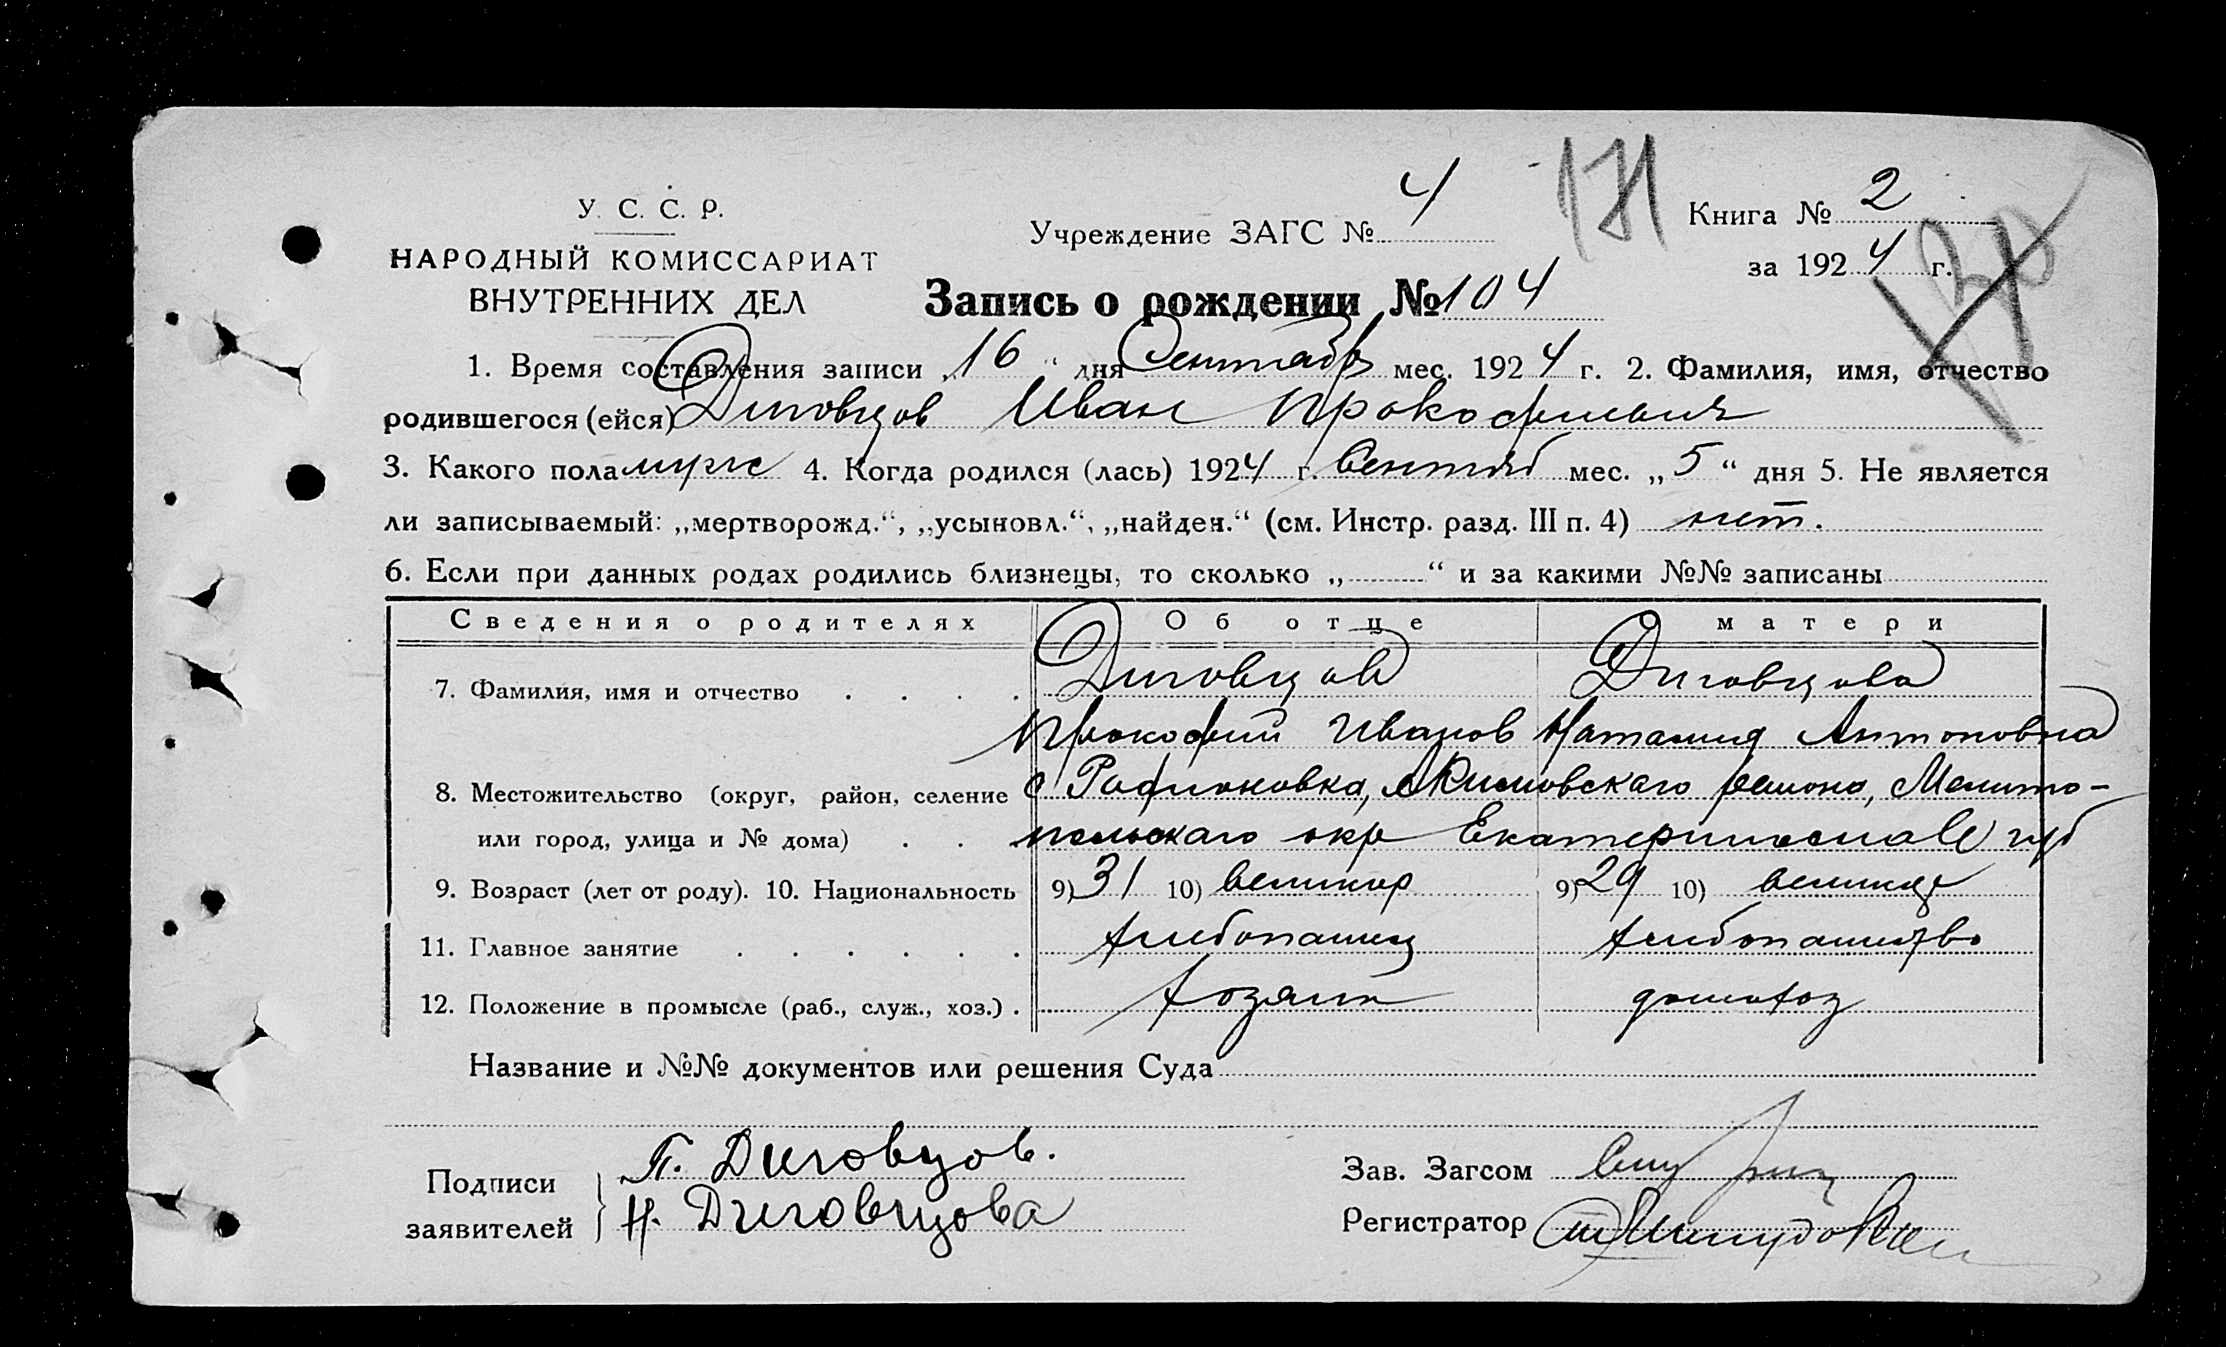 У. С. С. Р.
НАРОДНЫЙ КОМИССАРИАТ
ВНУТРЕННИХ ДЕЛ
Учреждение ЗАГС № 4
171
Книга № 2
за 1924 г.
Запись о рождении № 104
1. Время составления записи „16“ дня Сентабр мес. 1924 г. 2. Фамилия, имя, отчество
родившегося (ейся) Диговцов Иван Прокофиевич
3. Какого пола мужс 4. Когда родился (лась) 1924 г. Сентяб мес. „5“ дня 5. Не является
ли записываемый: „мертворожд.“, „усыновл.“, „найден.“ (см. Инстр. разд. III п. 4) нет.
6. Если при данных родах родились близнецы, то сколько „ “ и за какими №№ записаны
Сведения о родителях Об отце О матери
7. Фамилия, имя и отчество . . . . Диговцов Диговцова
Прокофий Иванов Наталия Антоновна
8. Местожительство (округ, район, селение с Родионовка, Акимовскаго района, Мелито-
или город, улица и № дома) . . . польскаго окр Екатеринослав губ
9. Возраст (лет от роду). 10. Национальность 9) 31 10) великор 9) 29 10) великор
11. Главное занятие . . . . . . хлебопашец хлебопашество
12. Положение в промысле (раб., служ., хоз.) . хозяин домохоз
Название и №№ документов или решения Суда
Подписи заявителей
П. Диговцов.
Н. Диговцова
Зав. Загсом
Регистратор